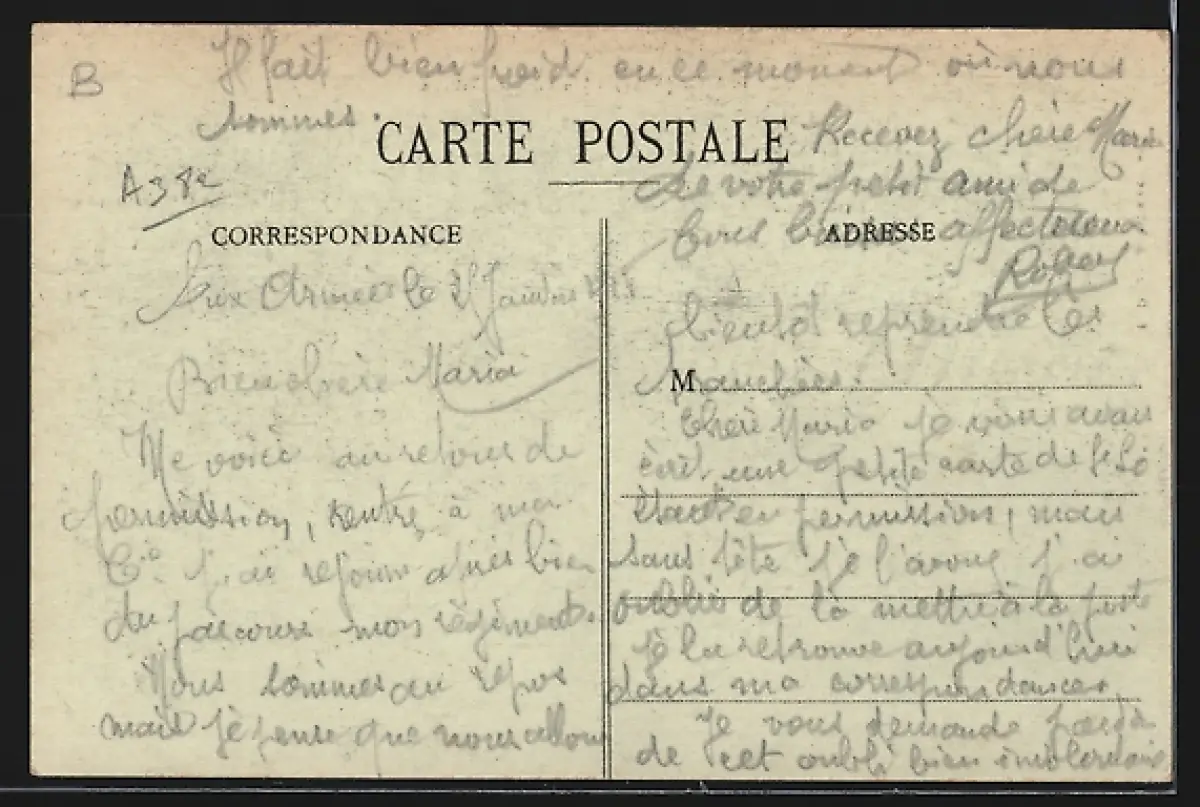 B
Il fait bien froid en ce moment où nous
sommes.
CARTE POSTALE
A38e
CORRESPONDANCE
Aux Armées le Janvier
Bien chère Maria
Me voici au retour de
permission, rentré à ma
Cie. j'ai rejoint après bien
du parcours mon régiment.
Nous sommes au repos
mais je pense que nous allons
ADRESSE
M
bientôt reprendre les
tranchées.
Chère Maria je vous avais
écrit une petite carte de St Lô
étant en permission, mais
sans tête je l'avoue j'ai
oublié de la mettre à la poste
je la retrouve aujourd'hui
dans ma correspondance,
Je vous demande pardon
de cet oubli bien involontaire
Recevez chère Maria
de votre petit ami de
bons affectueux
Robert